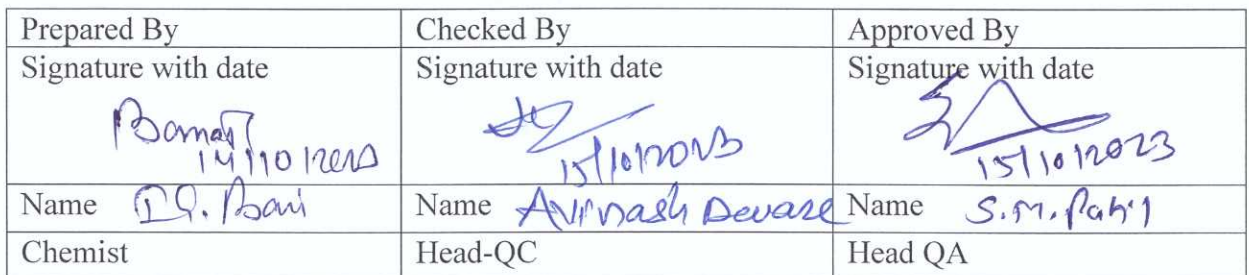 Prepared By Checked By Approved By
Signature with date Signature with date Signature with date
15/10/2023 15/10/2023
Name Name Avinash Deware Name S.M. Patil
Chemist Head-QC Head QA